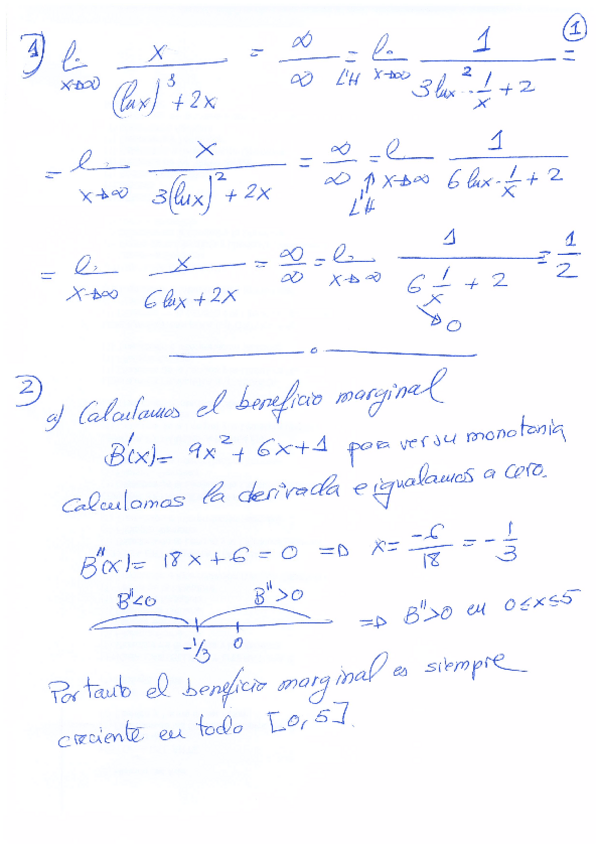 ①
1) l. x→∞ x / ((lnx)³ + 2x) = ∞/∞ = L'H l. x→∞ 1 / (3 lnx² · 1/x + 2) =
= l. x→∞ x / (3(lnx)² + 2x) = ∞/∞ = L'H l x→∞ 1 / (6 lnx · 1/x + 2)
= l. x→∞ x / (6 lnx + 2x) = ∞/∞ = l. x→∞ 1 / (6 1/x + 2) = 1/2
→0
2)
a) Calculamos el beneficio marginal
B'(x) = 9x² + 6x + 1 para ver su monotonia
calculamos la derivada e igualamos a cero.
B''(x) = 18x + 6 = 0 ⇒ x = -6/18 = -1/3
B''<0 B''>0 ⇒ B''>0 en 0≤x≤5
-1/3 0
Por tanto el beneficio marginal es siempre
creciente en todo [0,5].